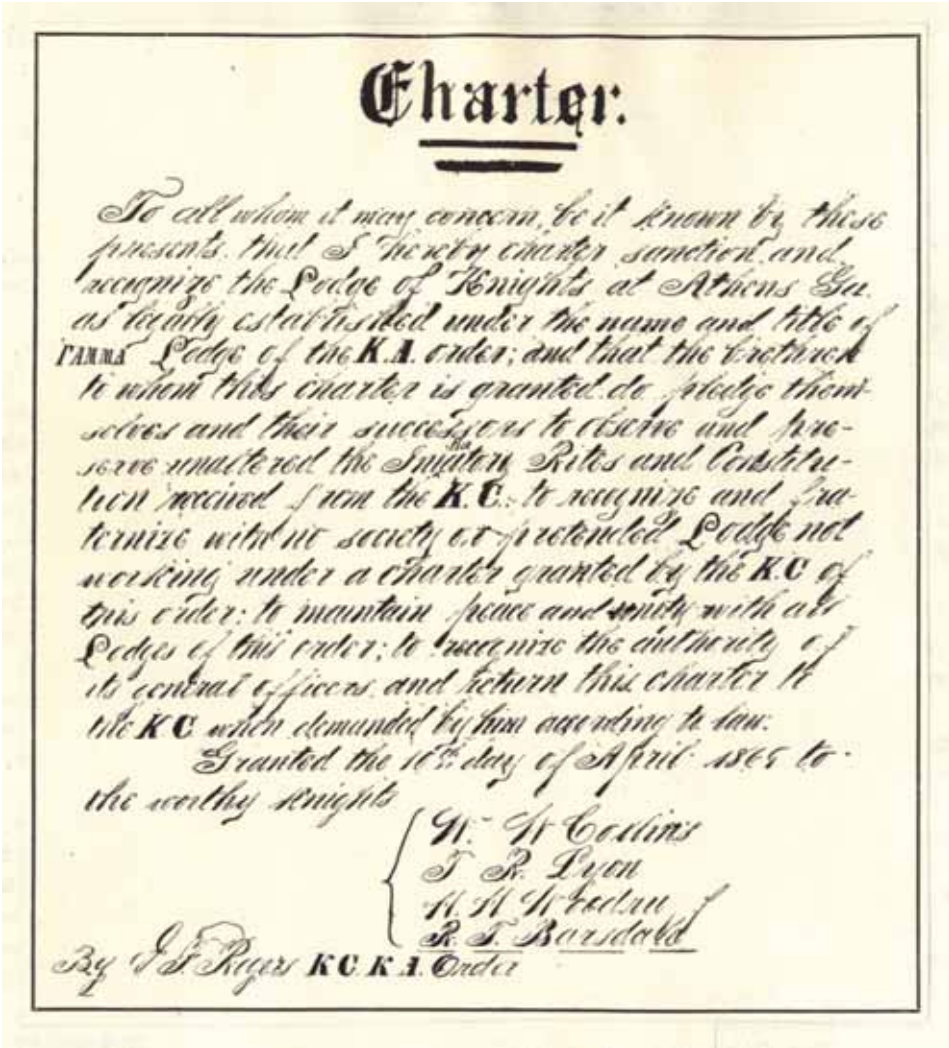 Charter.
To all whom it may concern, be it known by these
presents. that I hereby charter sanction and
recognize the Lodge of Knights at Athens Ga.
as legally established under the name and title of
ΓAMMA Lodge of the K.A. order; and that the brethren
to whom this charter is granted do pledge them-
selves and their successors to observe and pre-
serve unaltered the Initiatory Rites and Constitu-
tion received from the K.C.: to recognize and fra-
ternize with no society or pretended Lodge not
working under a charter granted by the K.C of
this order: to maintain peace and unity with all
Lodges of this order; to recognize the authority of
its general officers and return this charter to
the K C when demanded by him according to law.
Granted the 10th day of April 
to
the worthy Knights
W. W Collins
J R. Lyon
W. H Woodru f
R. T. Barsdale
By J. F. Rogers K C. K A. Order